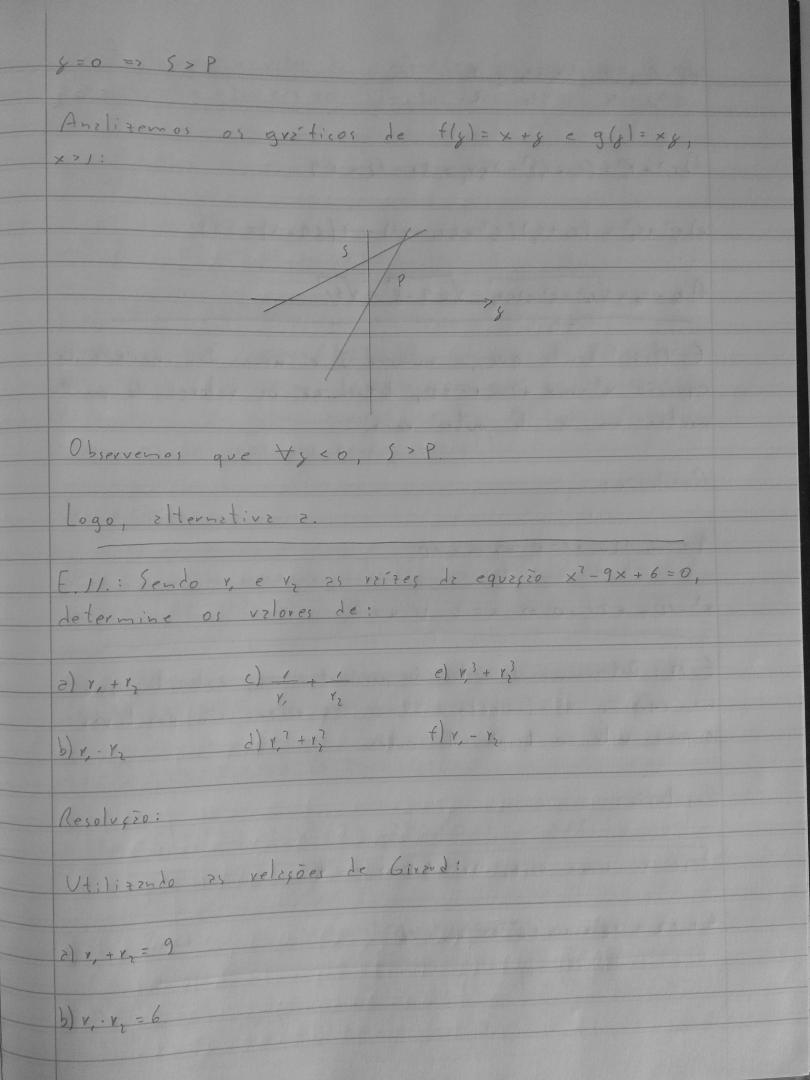 y = 0 => S > P
Analizemos os gráficos de f(y) = x + y e g(y) = xy,
x > 1:
S
P
y
Observemos que ∀y < 0, S > P.
Logo, alternativa a.
E.11.: Sendo r₁ e r₂ as raízes da equação x² - 9x + 6 = 0,
determine os valores de:
a) r₁ + r₂ c) 1/r₁ + 1/r₂ e) r₁³ + r₂³
b) r₁ · r₂ d) r₁² + r₂² f) r₁ - r₂
Resolução:
Utilizando as relações de Girard:
a) r₁ + r₂ = 9
b) r₁ · r₂ = 6